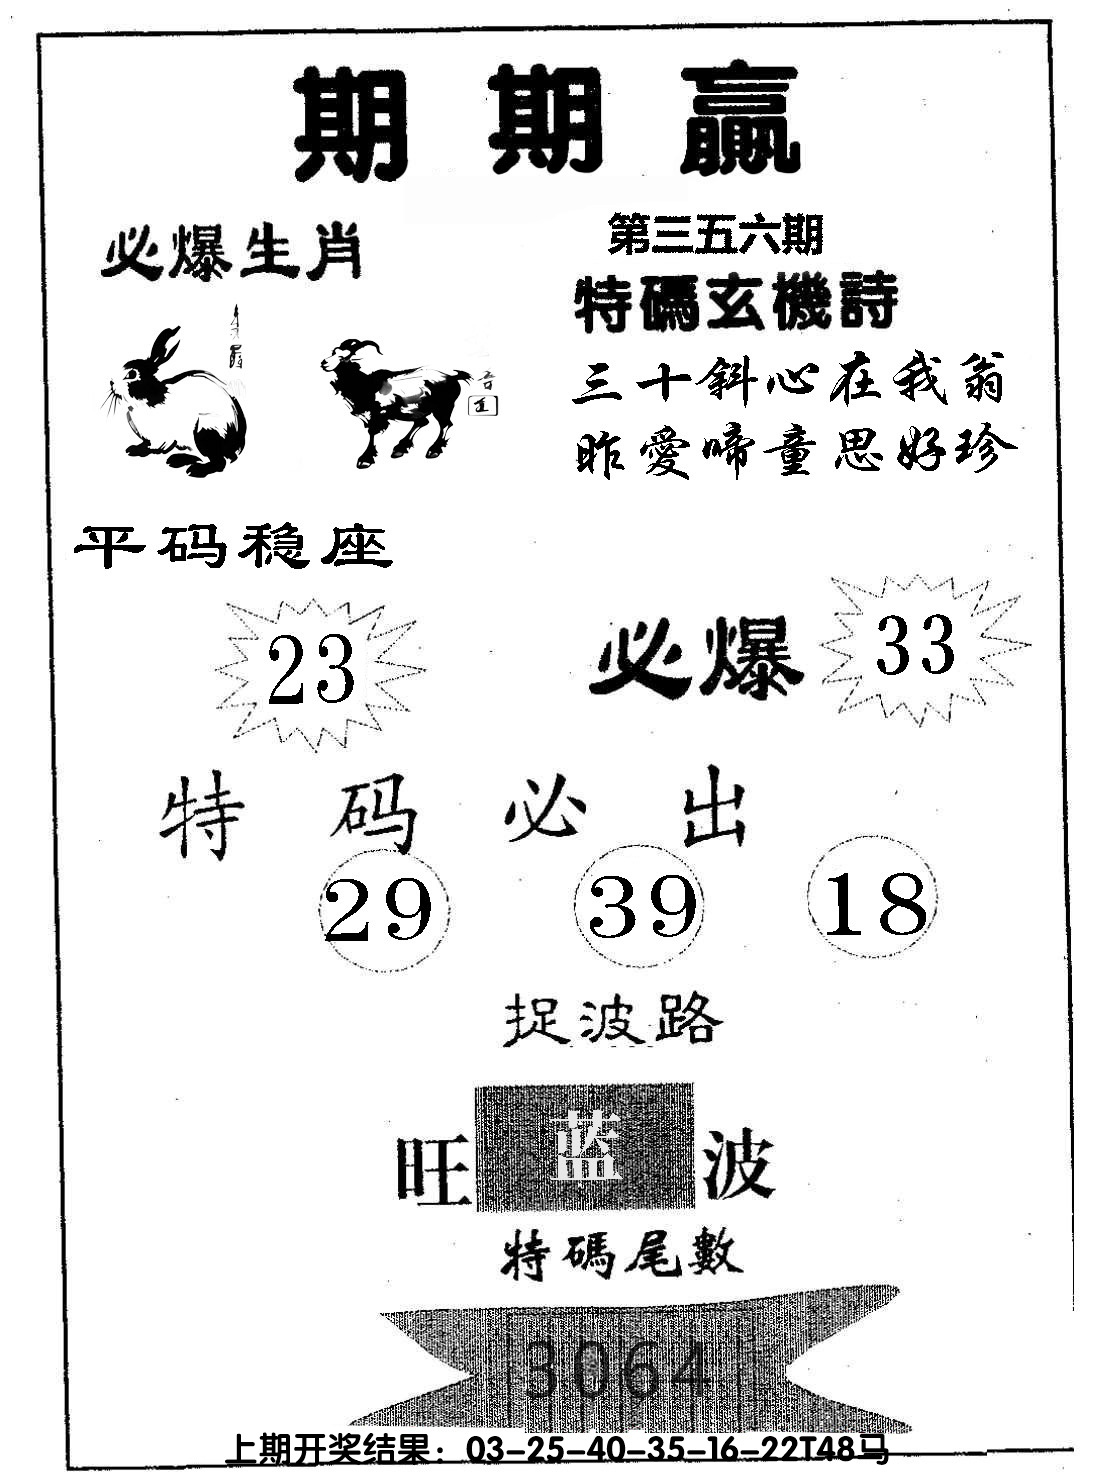 期期贏
必爆生肖
第三五六期
特碼玄機詩
三十斜心在我翁
昨愛啼童思好珍
平码稳座
23
必爆 33
特码必出
29 39 18
捉波路
旺 蓝 波
特碼尾數
3064
上期开奖结果：03-25-40-35-16-22T48马